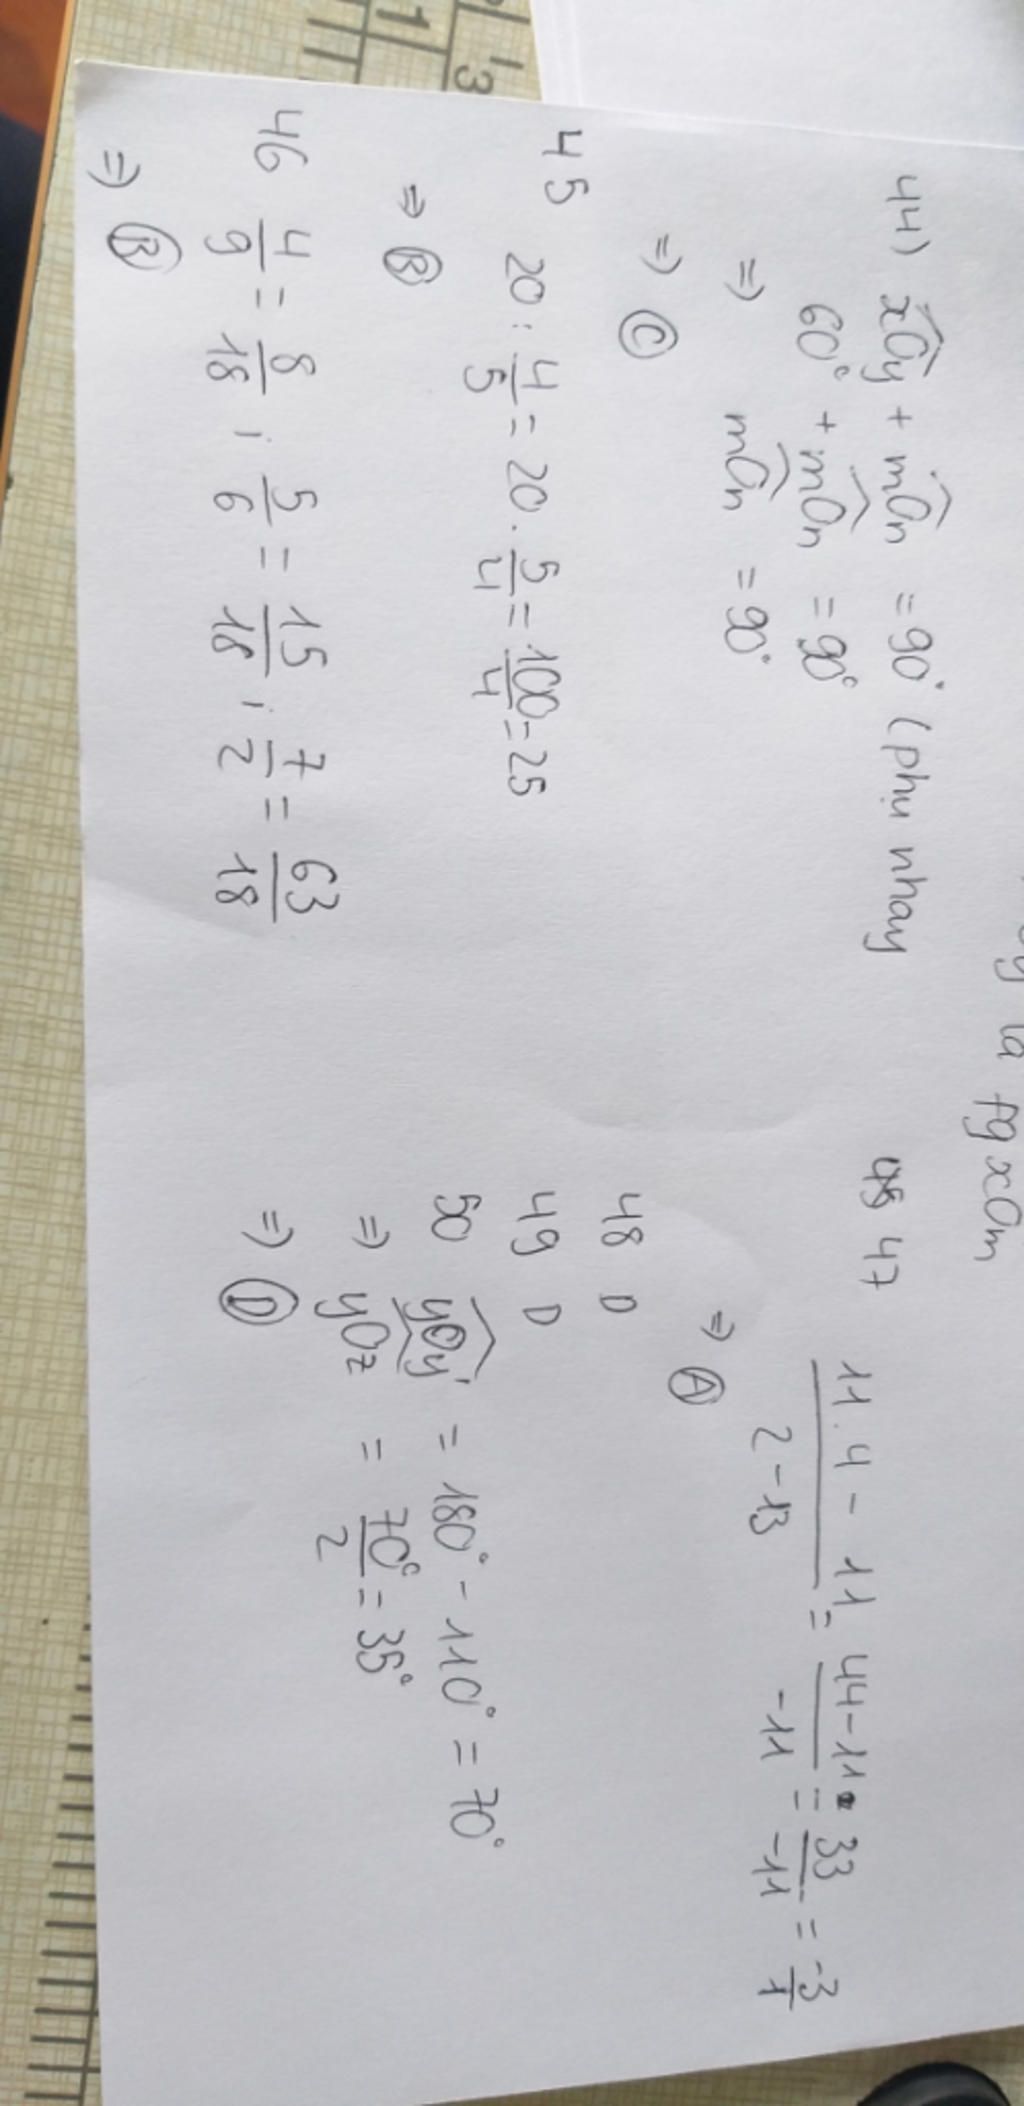 y là pg xOm
44) xOy + mOn = 90° (phụ nhay
60° + mOn = 90°
⇒ mOn = 90°
⇒ C
45 20 : 4/5 = 20 . 5/4 = 100/4 = 25
⇒ B
46 4/9 = 8/18 ; 5/6 = 15/18 ; 7/2 = 63/18
⇒ B
47 11.4 - 11 / 2 - 13 = 44-11 / -11 = 33/-11 = -3/1
⇒ A
48 D
49 D
50 yOy' = 180° - 110° = 70°
⇒ yOz = 70°/2 = 35°
⇒ D
1 3